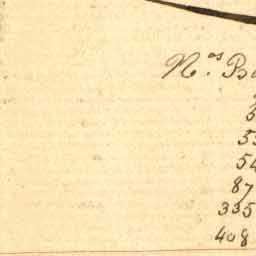 N.os Ba
5
53
54
87
335
408